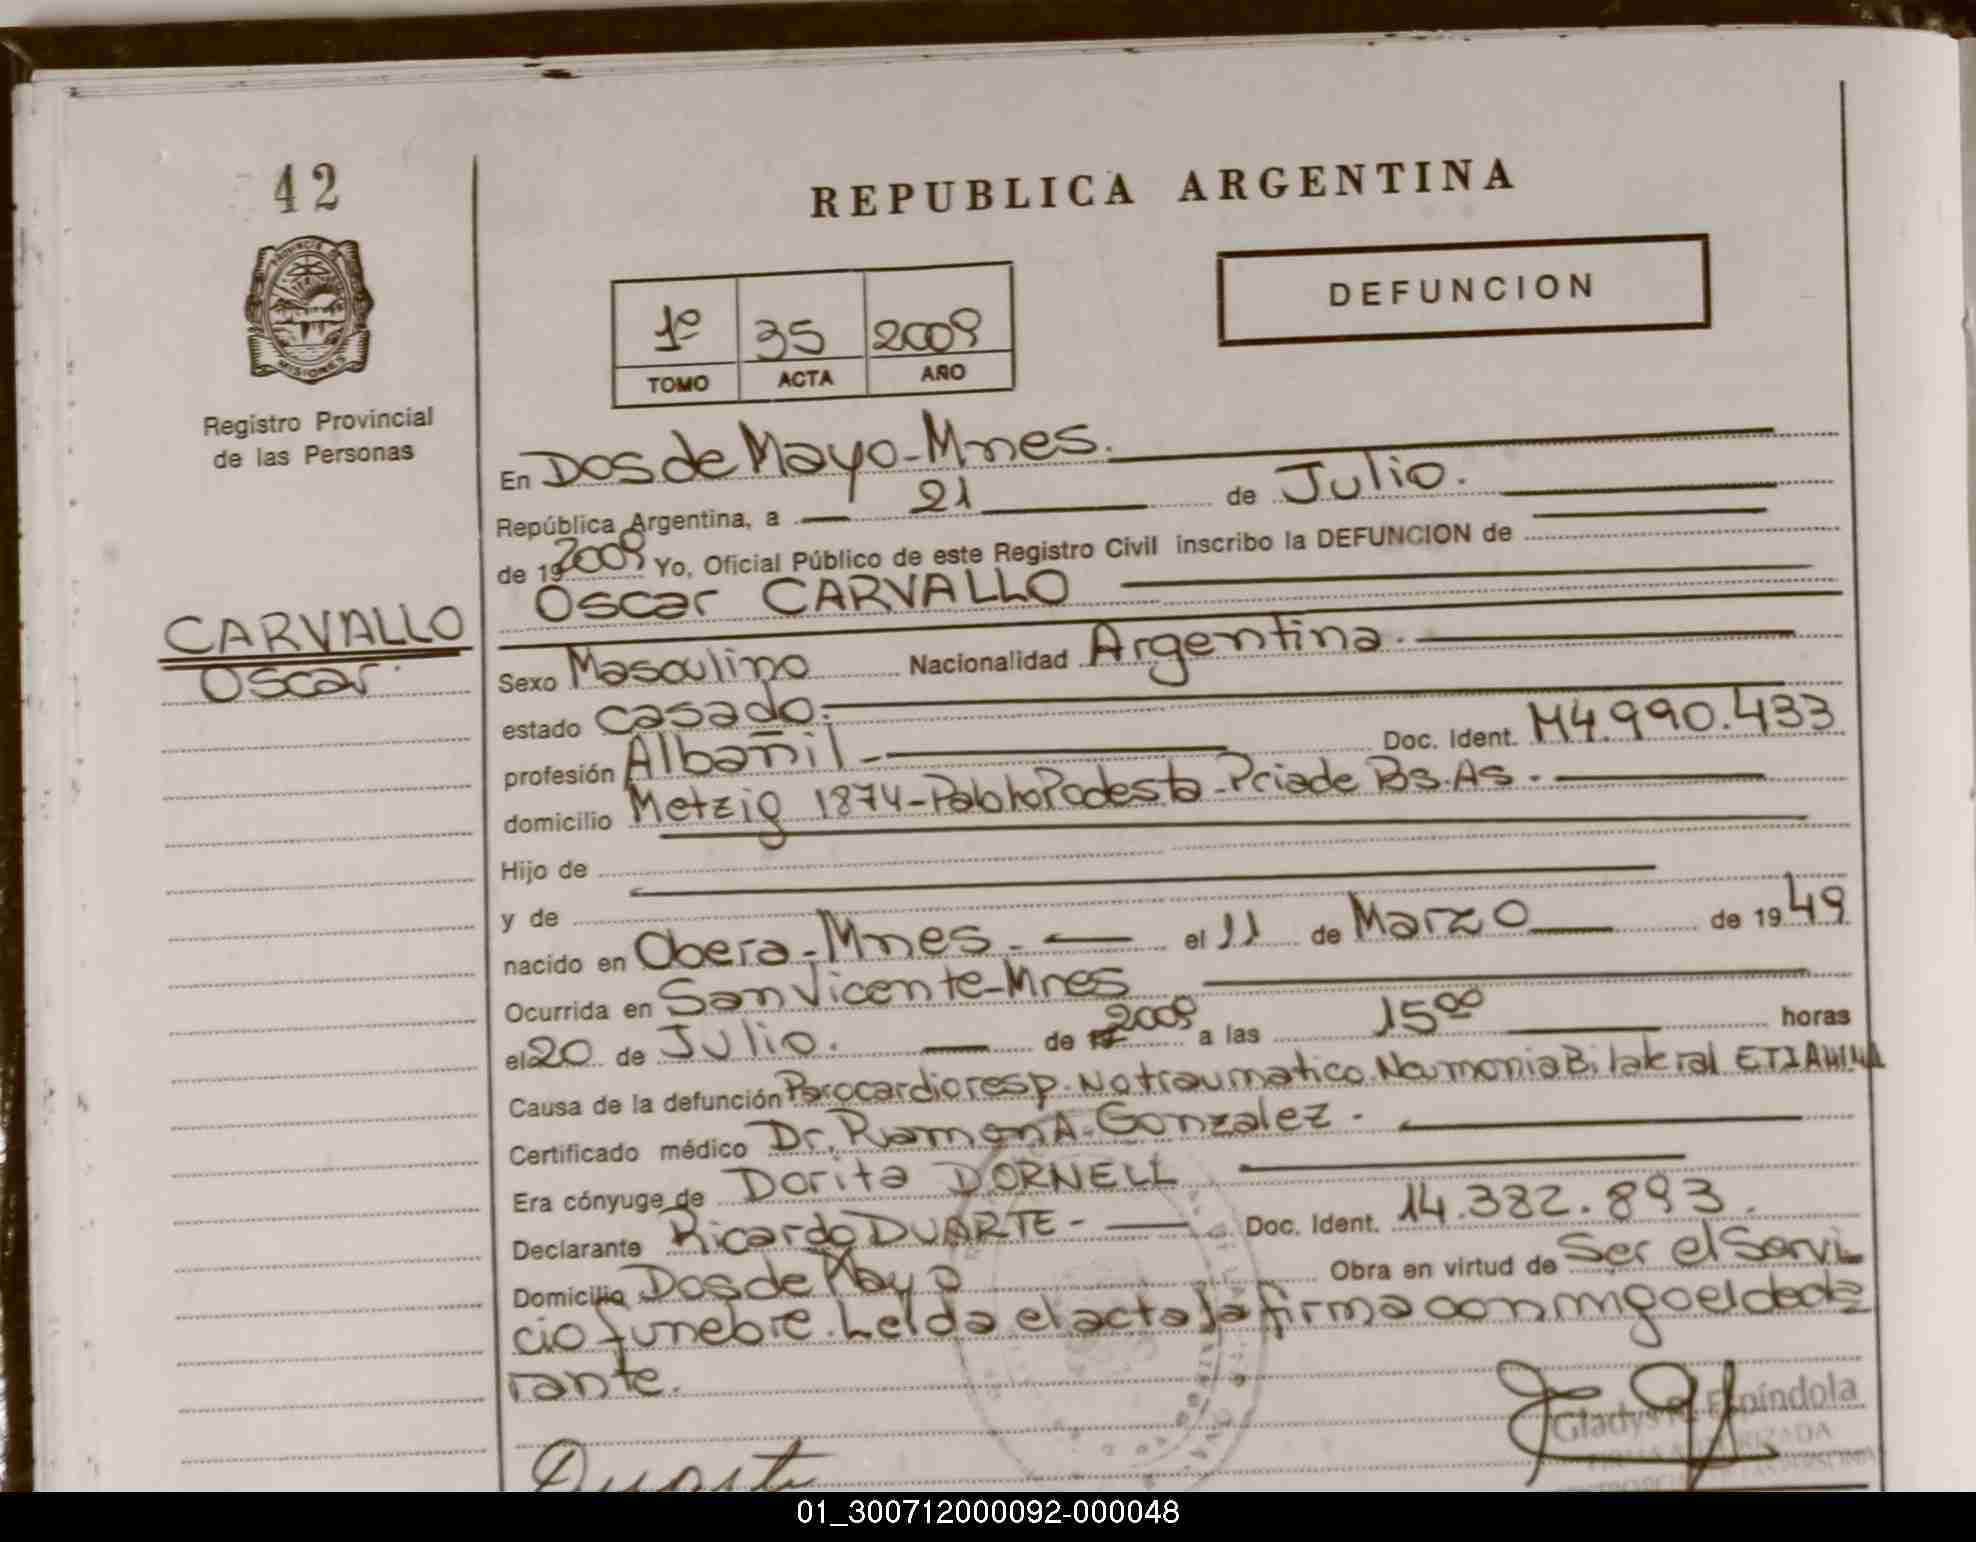 42
REPUBLICA ARGENTINA
DEFUNCION
1º 35 2009
TOMO ACTA AÑO
PROVINCIA DE
MISIONES
Registro Provincial
de las Personas
En Dos de Mayo - Mnes.
República Argentina, a 21 de Julio.
de 19 2009 Yo, Oficial Público de este Registro Civil inscribo la DEFUNCION de
Oscar CARVALLO
CARVALLO
Oscar
Sexo Masculino Nacionalidad Argentina.
estado casado.
profesión Albañil Doc. Ident. M4.990.433
domicilio Metzig 1874 - Pablo Podesta - Pcia de Bs. As.
Hijo de
y de
nacido en Obera - Mnes. el 11 de Marzo de 1949
Ocurrida en San Vicente - Mnes
el 20 de Julio. de 2009 a las 15 00 horas
Causa de la defunción Parocardioresp. No traumatico. Neumonia Bilateral
Certificado médico Dr. Ramon A. Gonzalez.
Era cónyuge de Dorita DORNELL
Declarante Ricardo DUARTE - Doc. Ident. 14.382.893.
Domicilio Dos de Mayo Obra en virtud de Ser el Servi
cio funebre. Leida el acta la firma conmigo el decla
rante.
Gladys R. Espíndola
Duarte
01_300712000092-000048